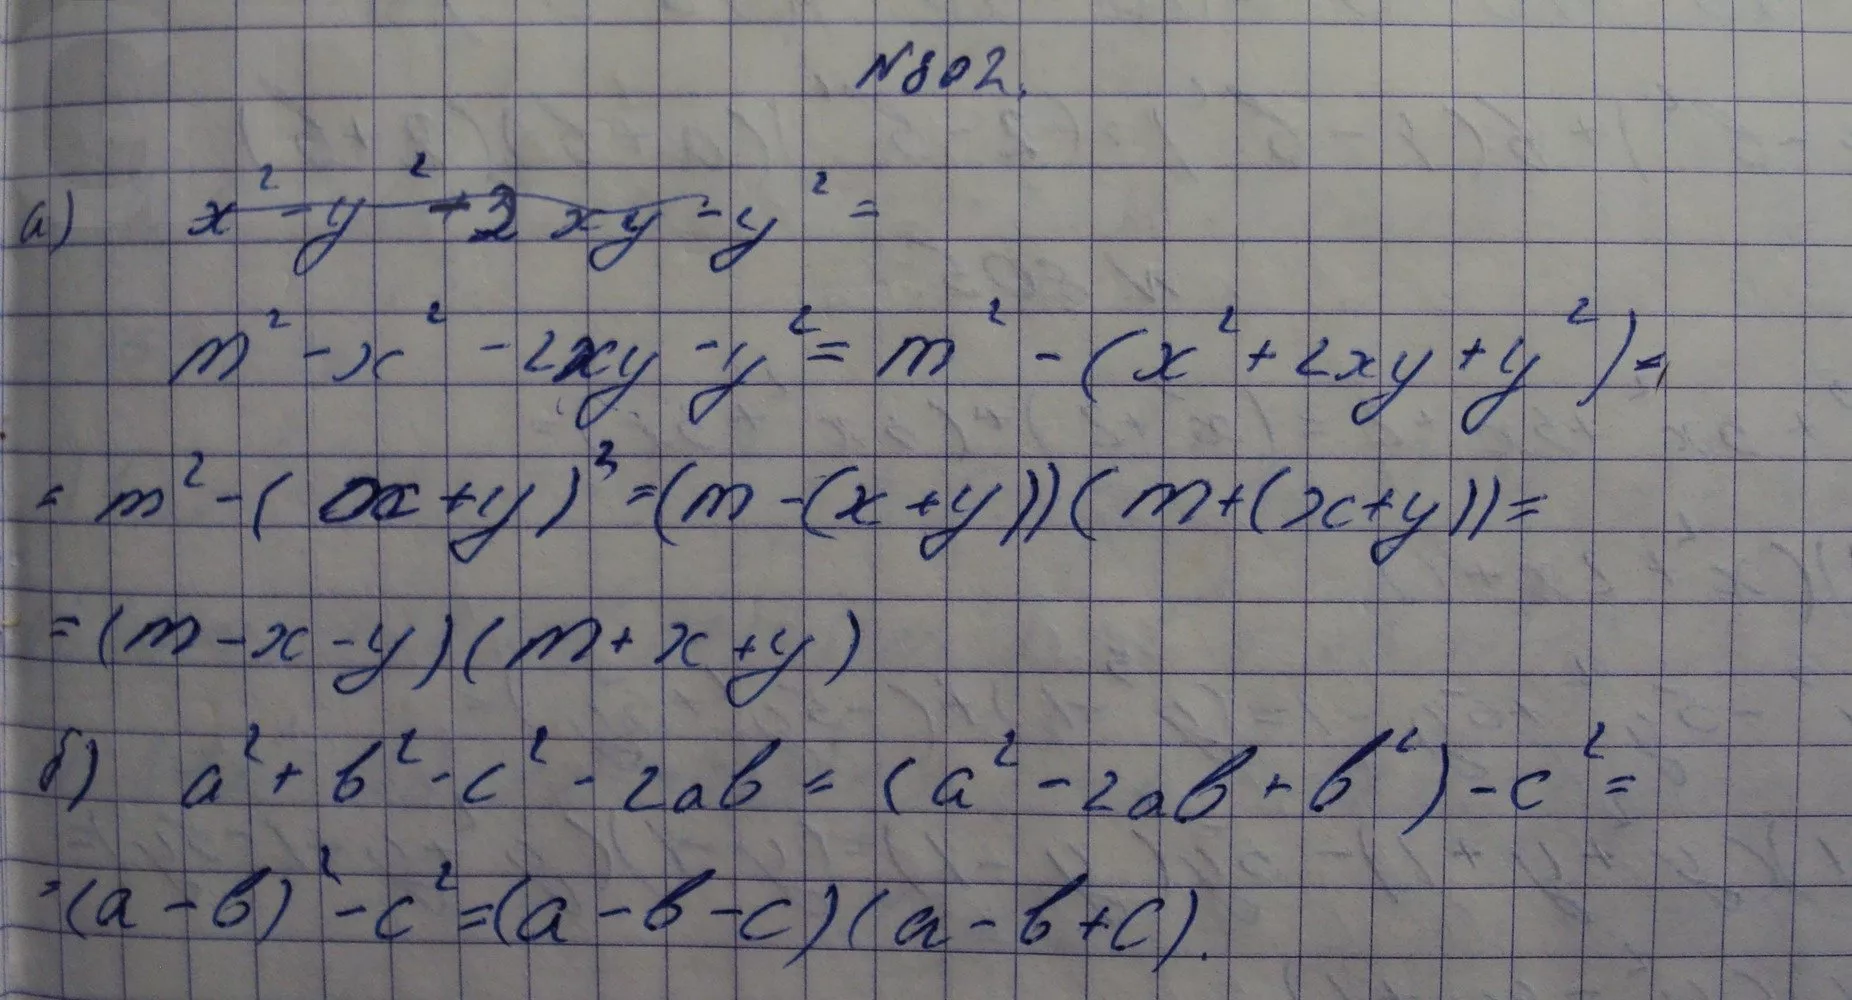 N802.
а) x² - y² + 2xy - y² =
m² - x² - 2xy - y² = m² - (x² + 2xy + y²) =
= m² - (x + y)³ = (m - (x + y))(m + (x + y)) =
= (m - x - y)(m + x + y)
б) a² + b² - c² - 2ab = (a² - 2ab + b²) - c² =
= (a - b)² - c² = (a - b - c)(a - b + c).